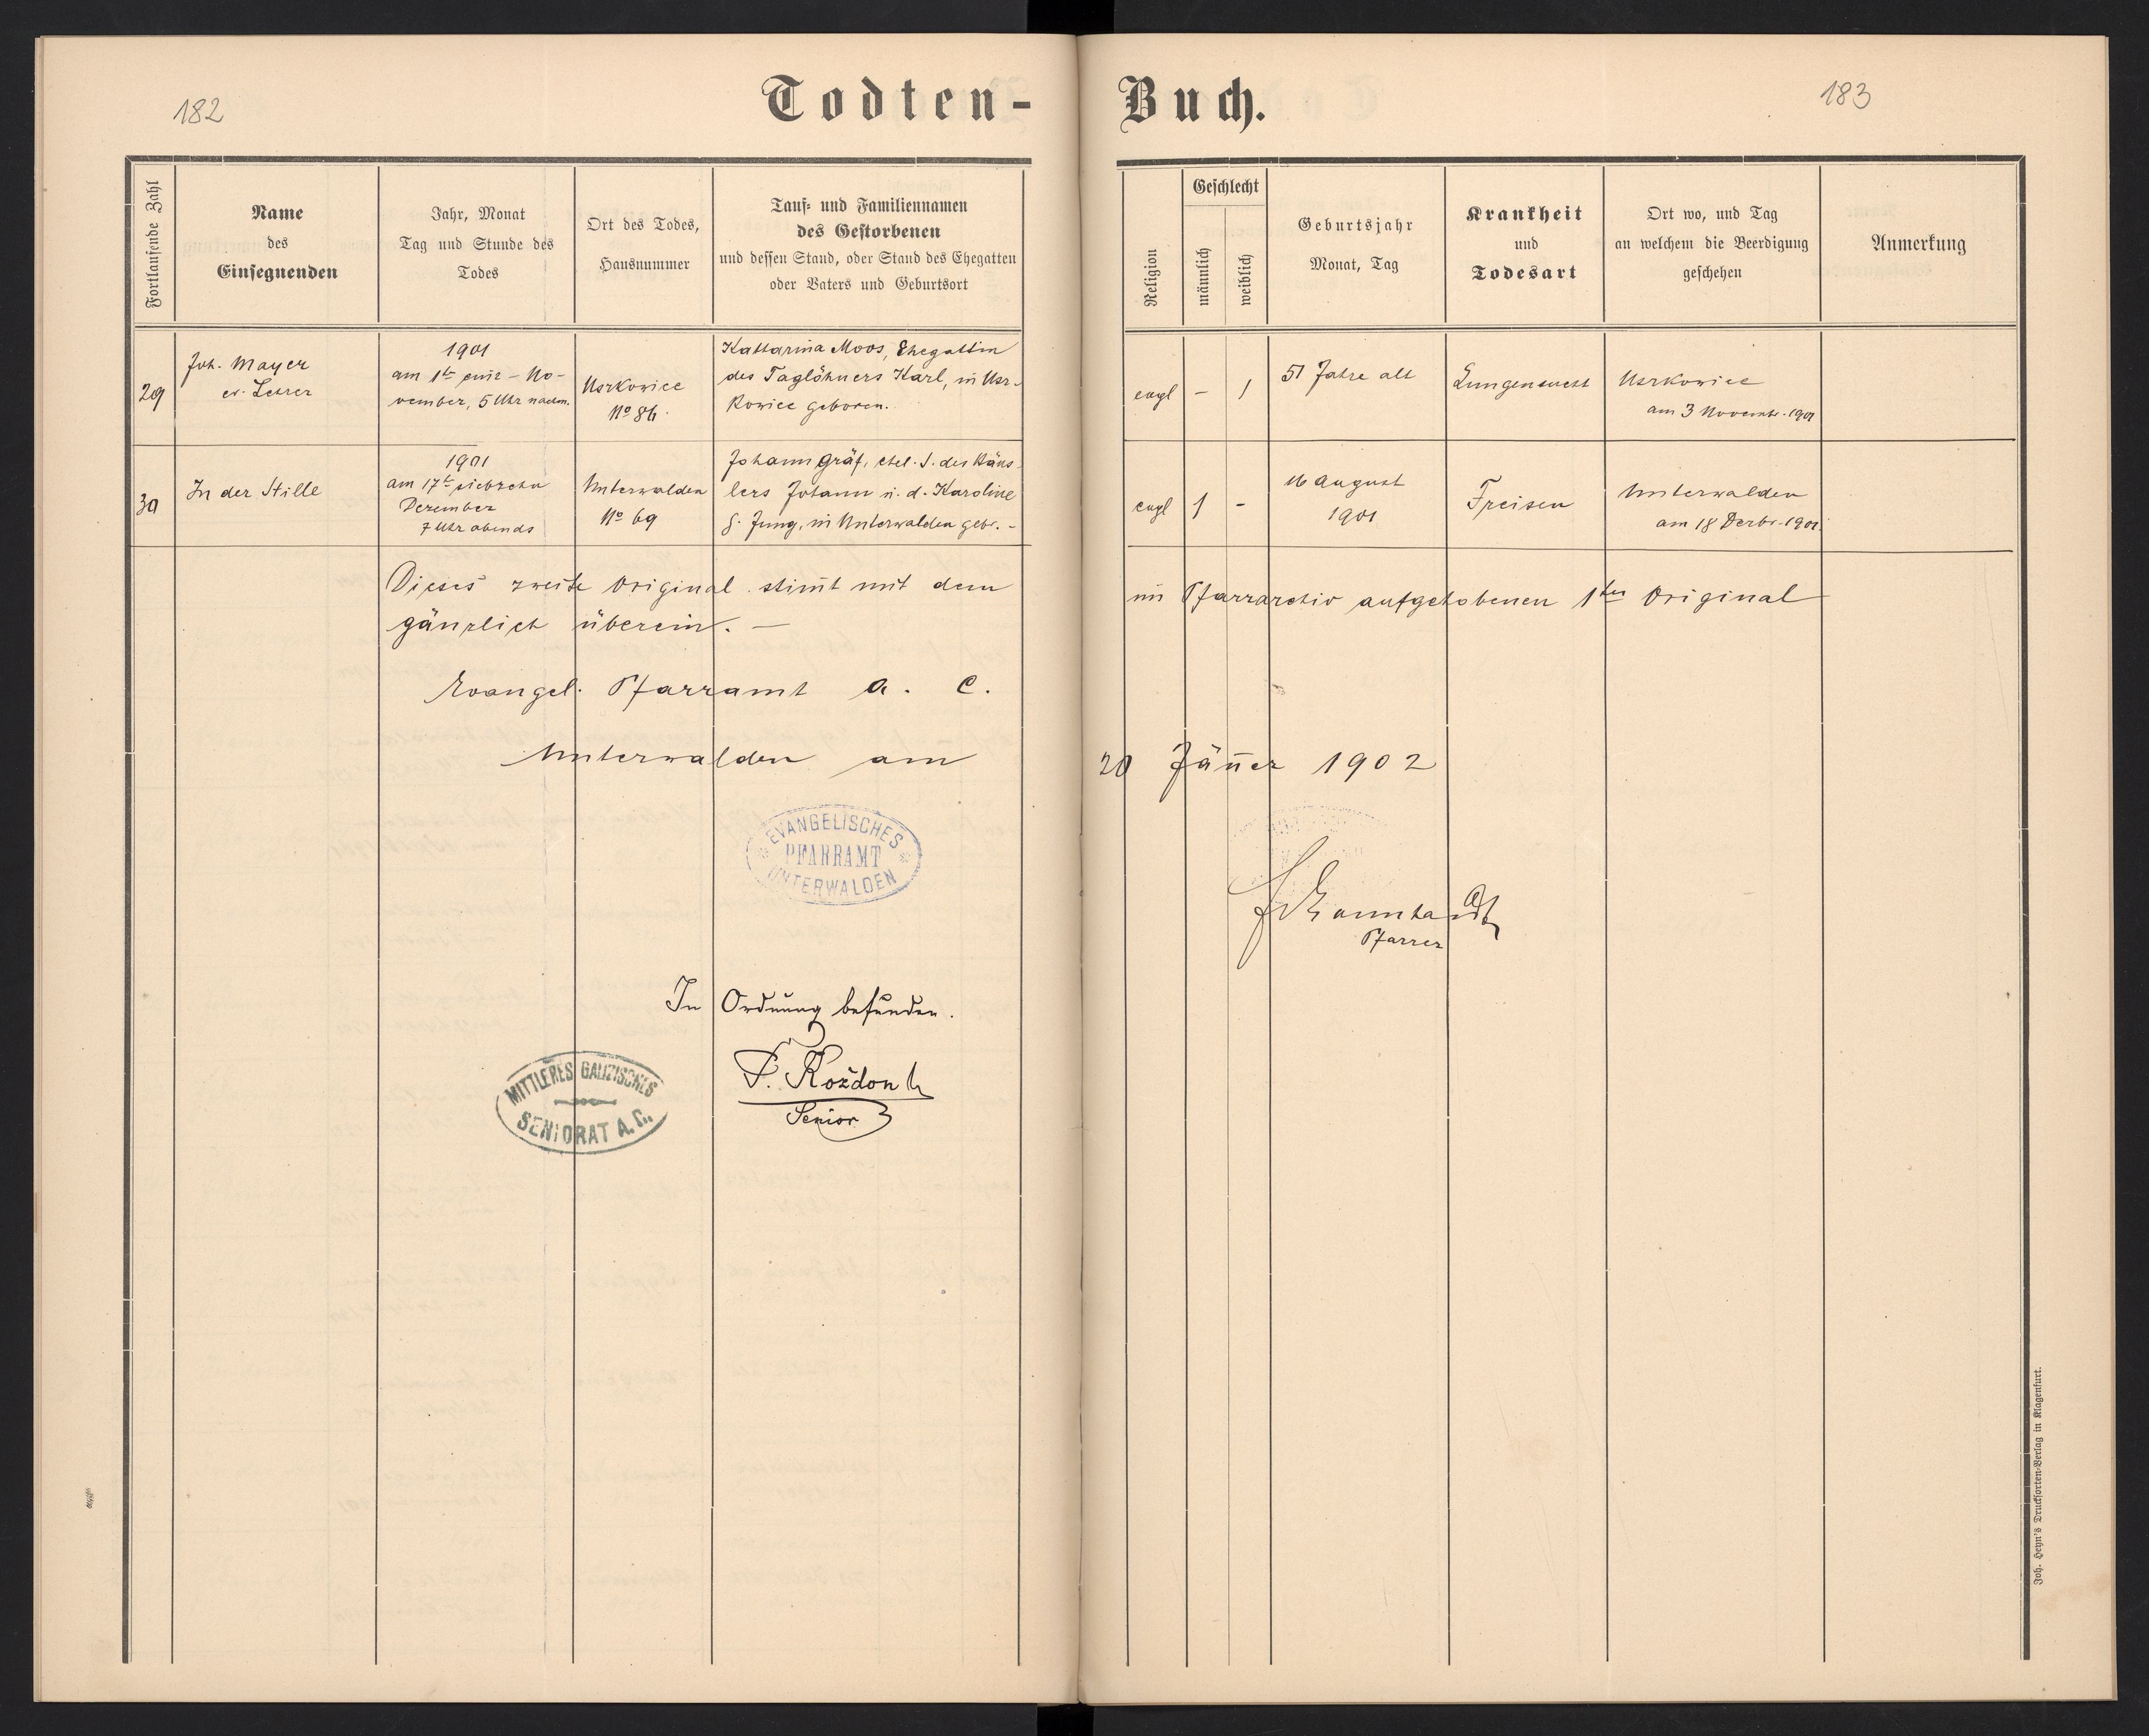 182
Todten-
Buch.
183
Fortlaufende Zahl
Name
des
Einsegnenden
Jahr, Monat
Tag und Stunde des
Todes
Ort des Todes,
Hausnummer
Tauf- und Familiennamen
des Gestorbenen
und dessen Stand, oder Stand des Ehegatten
oder Vaters und Geburtsort
Religion
Geschlecht
männlich
weiblich
Geburtsjahr
Monat, Tag
Krankheit
und
Todesart
Ort wo, und Tag
an welchem die Beerdigung
geschehen
Anmerkung
29
Joh. Mayer
ev. Lehrer
1901
am 1te eins - No-
vember, 5 Uhr nachm.
Uszkowice
No 86.
Katharina Moos, Ehegattin
des Taglöhners Karl, in Usz-
kowice geboren.
evgl
-
1
51 Jahre alt
Lungensucht
Uszkowice
am 3 Novembr. 1901
30
In der Stille
1901
am 17te siebzehn
Dezember
7 Uhr abends
Unterwalden
No 69
Johann Gräf, ehel. S. des Häus-
lers Johann u. d. Karoline
g. Jung, in Unterwalden gebr. -
evgl
1
-
16 August
1901
Freisen
Unterwalden
am 18 Dezbr. 1901.
Dieses zweite Original stimt mit dem
im Pfarrarchiv aufgehobenen 1ten Original
gänzlich überein. -
Evangel. Pfarramt A. C.
Unterwalden am
20 Jäner 1902
EVANGELISCHES
PFARRAMT
UNTERWALDEN
Pfarrer
In Ordnung befunden.
MITTLERES GALIZISCHES
SENIORAT A.C.
Senior
Joh. Heyn's Drucksorten-Verlag in Klagenfurt.